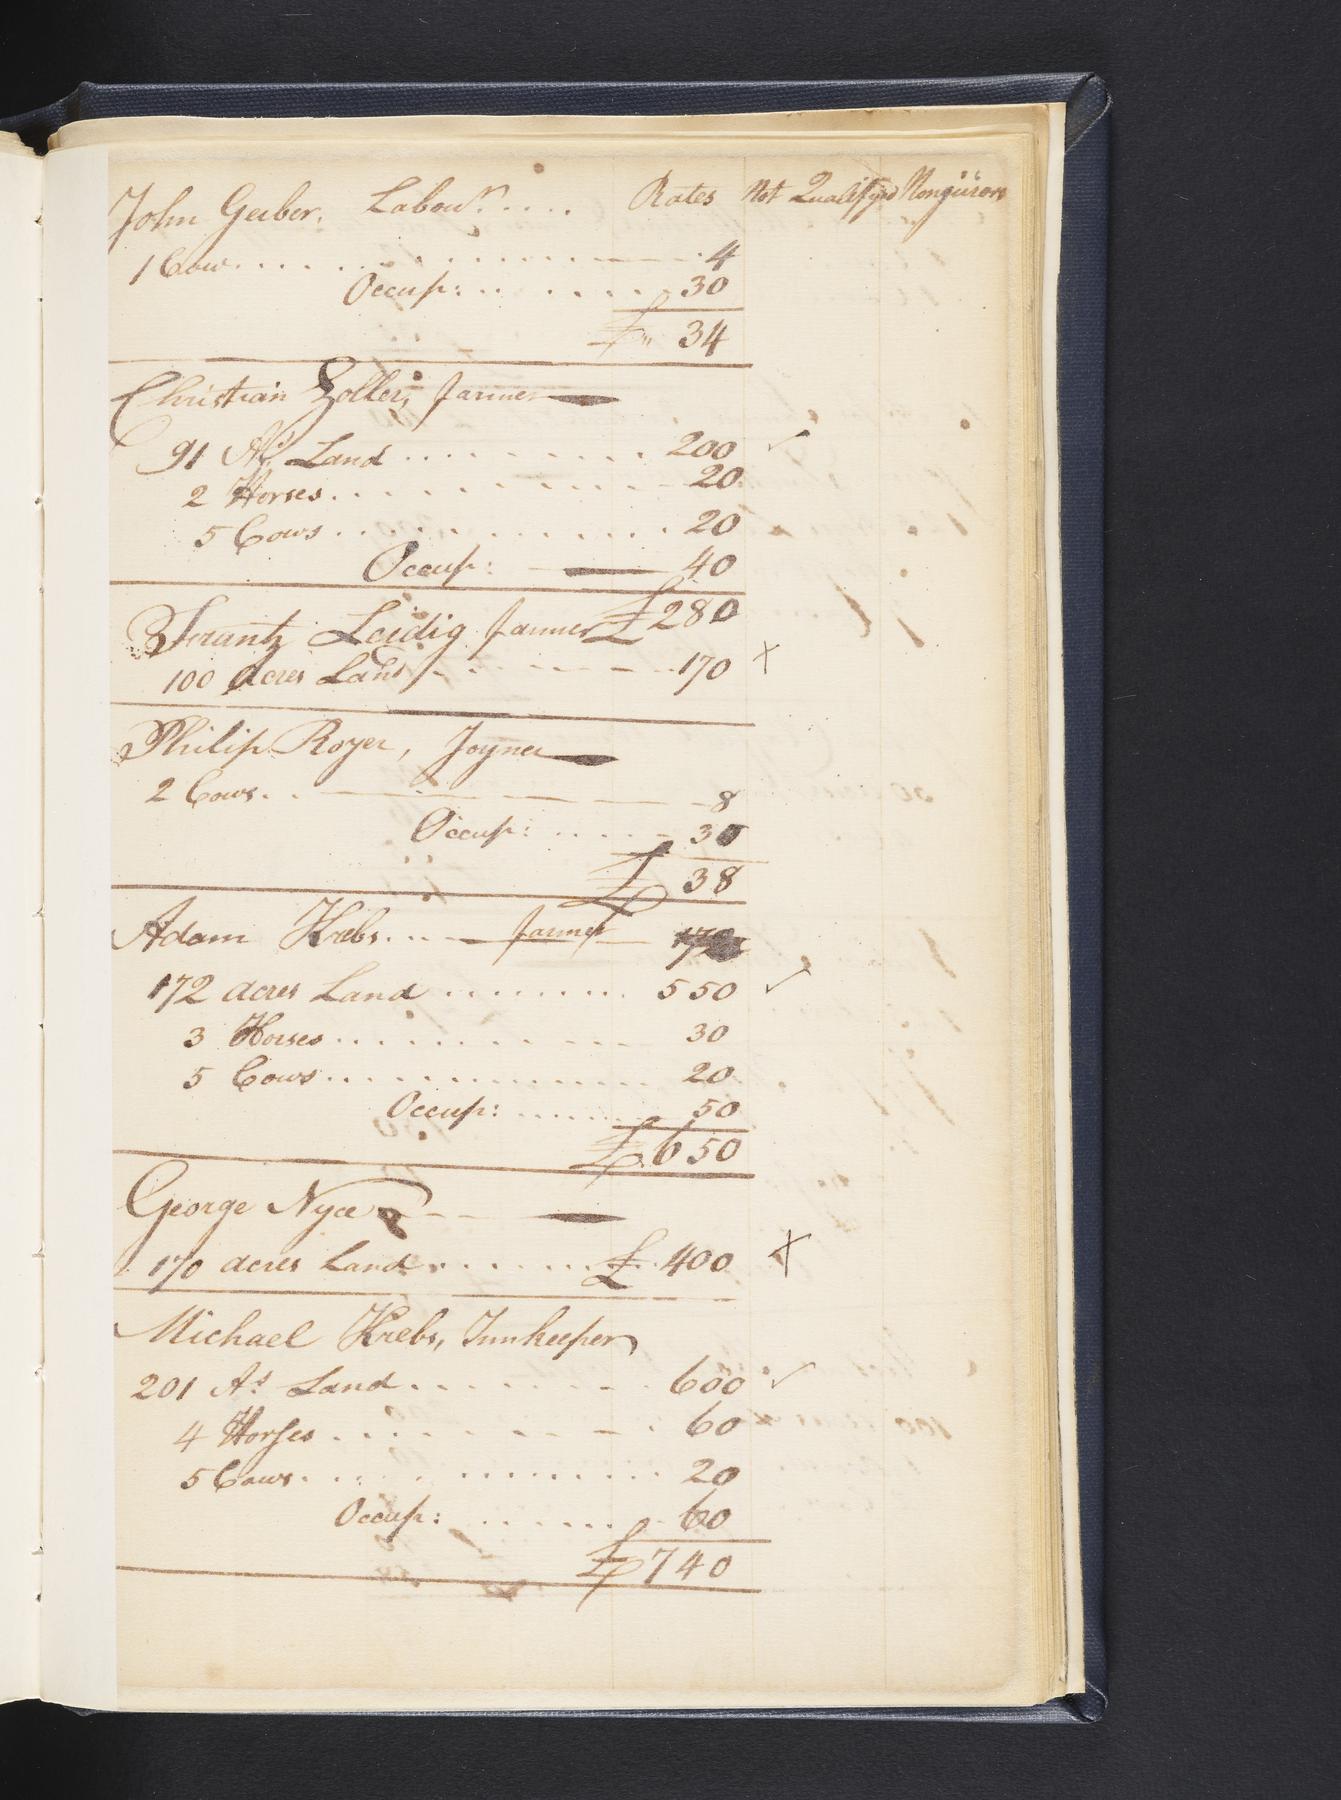 John Gerber, Labour.... Rates Not Qualifyed Nonjurors
1 Cow.......... 4
Occup:....... 30
£ 34
Christian Zoller, farmer
91 As. Land.......... 200 ✓
2 Horses.......... 20
5 Cows.......... 20
Occup: — 40
£ 280
Frantz Leidig farmer
100 acres Land - - - - 170 x
Philip Royer, Joyner
2 Cows. . — — — 8
Occup:..... 30
£ 38
Adam Krebs... — farmer —
172 acres Land ........ 550 ✓
3 Horses.......... 30
5 Cows.......... 20
Occup:....... 50
£ 650
George Nyce
170 acres Land....... £ 400 x
Michael Krebs, Innkeeper
201 As Land....... 600 ✓
4 Horses....... 60
5 Cows.......... 20
Occup:....... 60
£ 740